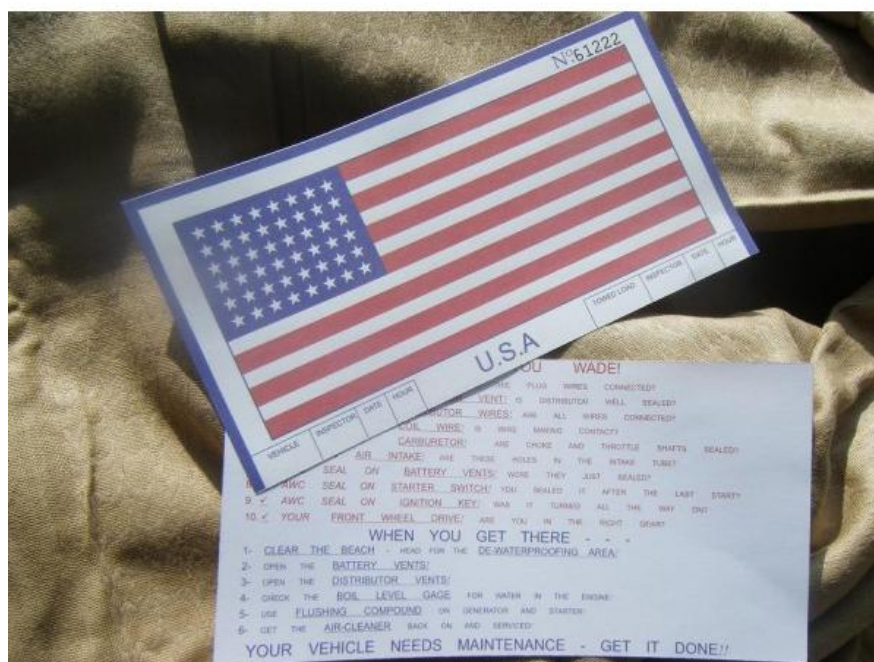 Nº.61222
U.S.A
VEHICLE INSPECTOR DATE HOUR
TOWED LOAD INSPECTOR DATE HOUR
YOU WADE!
PLUG WIRES CONNECTED?
VENT! IS DISTRIBUTOR WELL SEALED?
WIRES! ARE ALL WIRES CONNECTED?
COIL WIRE! IS WIRE MAKING CONTACT?
CARBURETOR! ARE CHOKE AND THROTTLE SHAFTS SEALED?
AIR INTAKE! ARE THESE HOLES IN THE INTAKE TUBE?
SEAL ON BATTERY VENTS! WERE THEY JUST SEALED?
✓ AWC SEAL ON STARTER SWITCH! YOU SEALED IT AFTER THE LAST START?
9. ✓ AWC SEAL ON IGNITION KEY! WAS IT TURNED ALL THE WAY ON?
10. ✓ YOUR FRONT WHEEL DRIVE! ARE YOU IN THE RIGHT GEAR?
WHEN YOU GET THERE - - -
1- CLEAR THE BEACH - HEAD FOR THE DE-WATERPROOFING AREA!
2- OPEN THE BATTERY VENTS!
3- OPEN THE DISTRIBUTOR VENTS!
4- CHECK THE BOIL LEVEL GAGE FOR WATER IN THE ENGINE!
5- USE FLUSHING COMPOUND ON GENERATOR AND STARTER!
6- GET THE AIR-CLEANER BACK ON AND SERVICED!
YOUR VEHICLE NEEDS MAINTENANCE - GET IT DONE!!